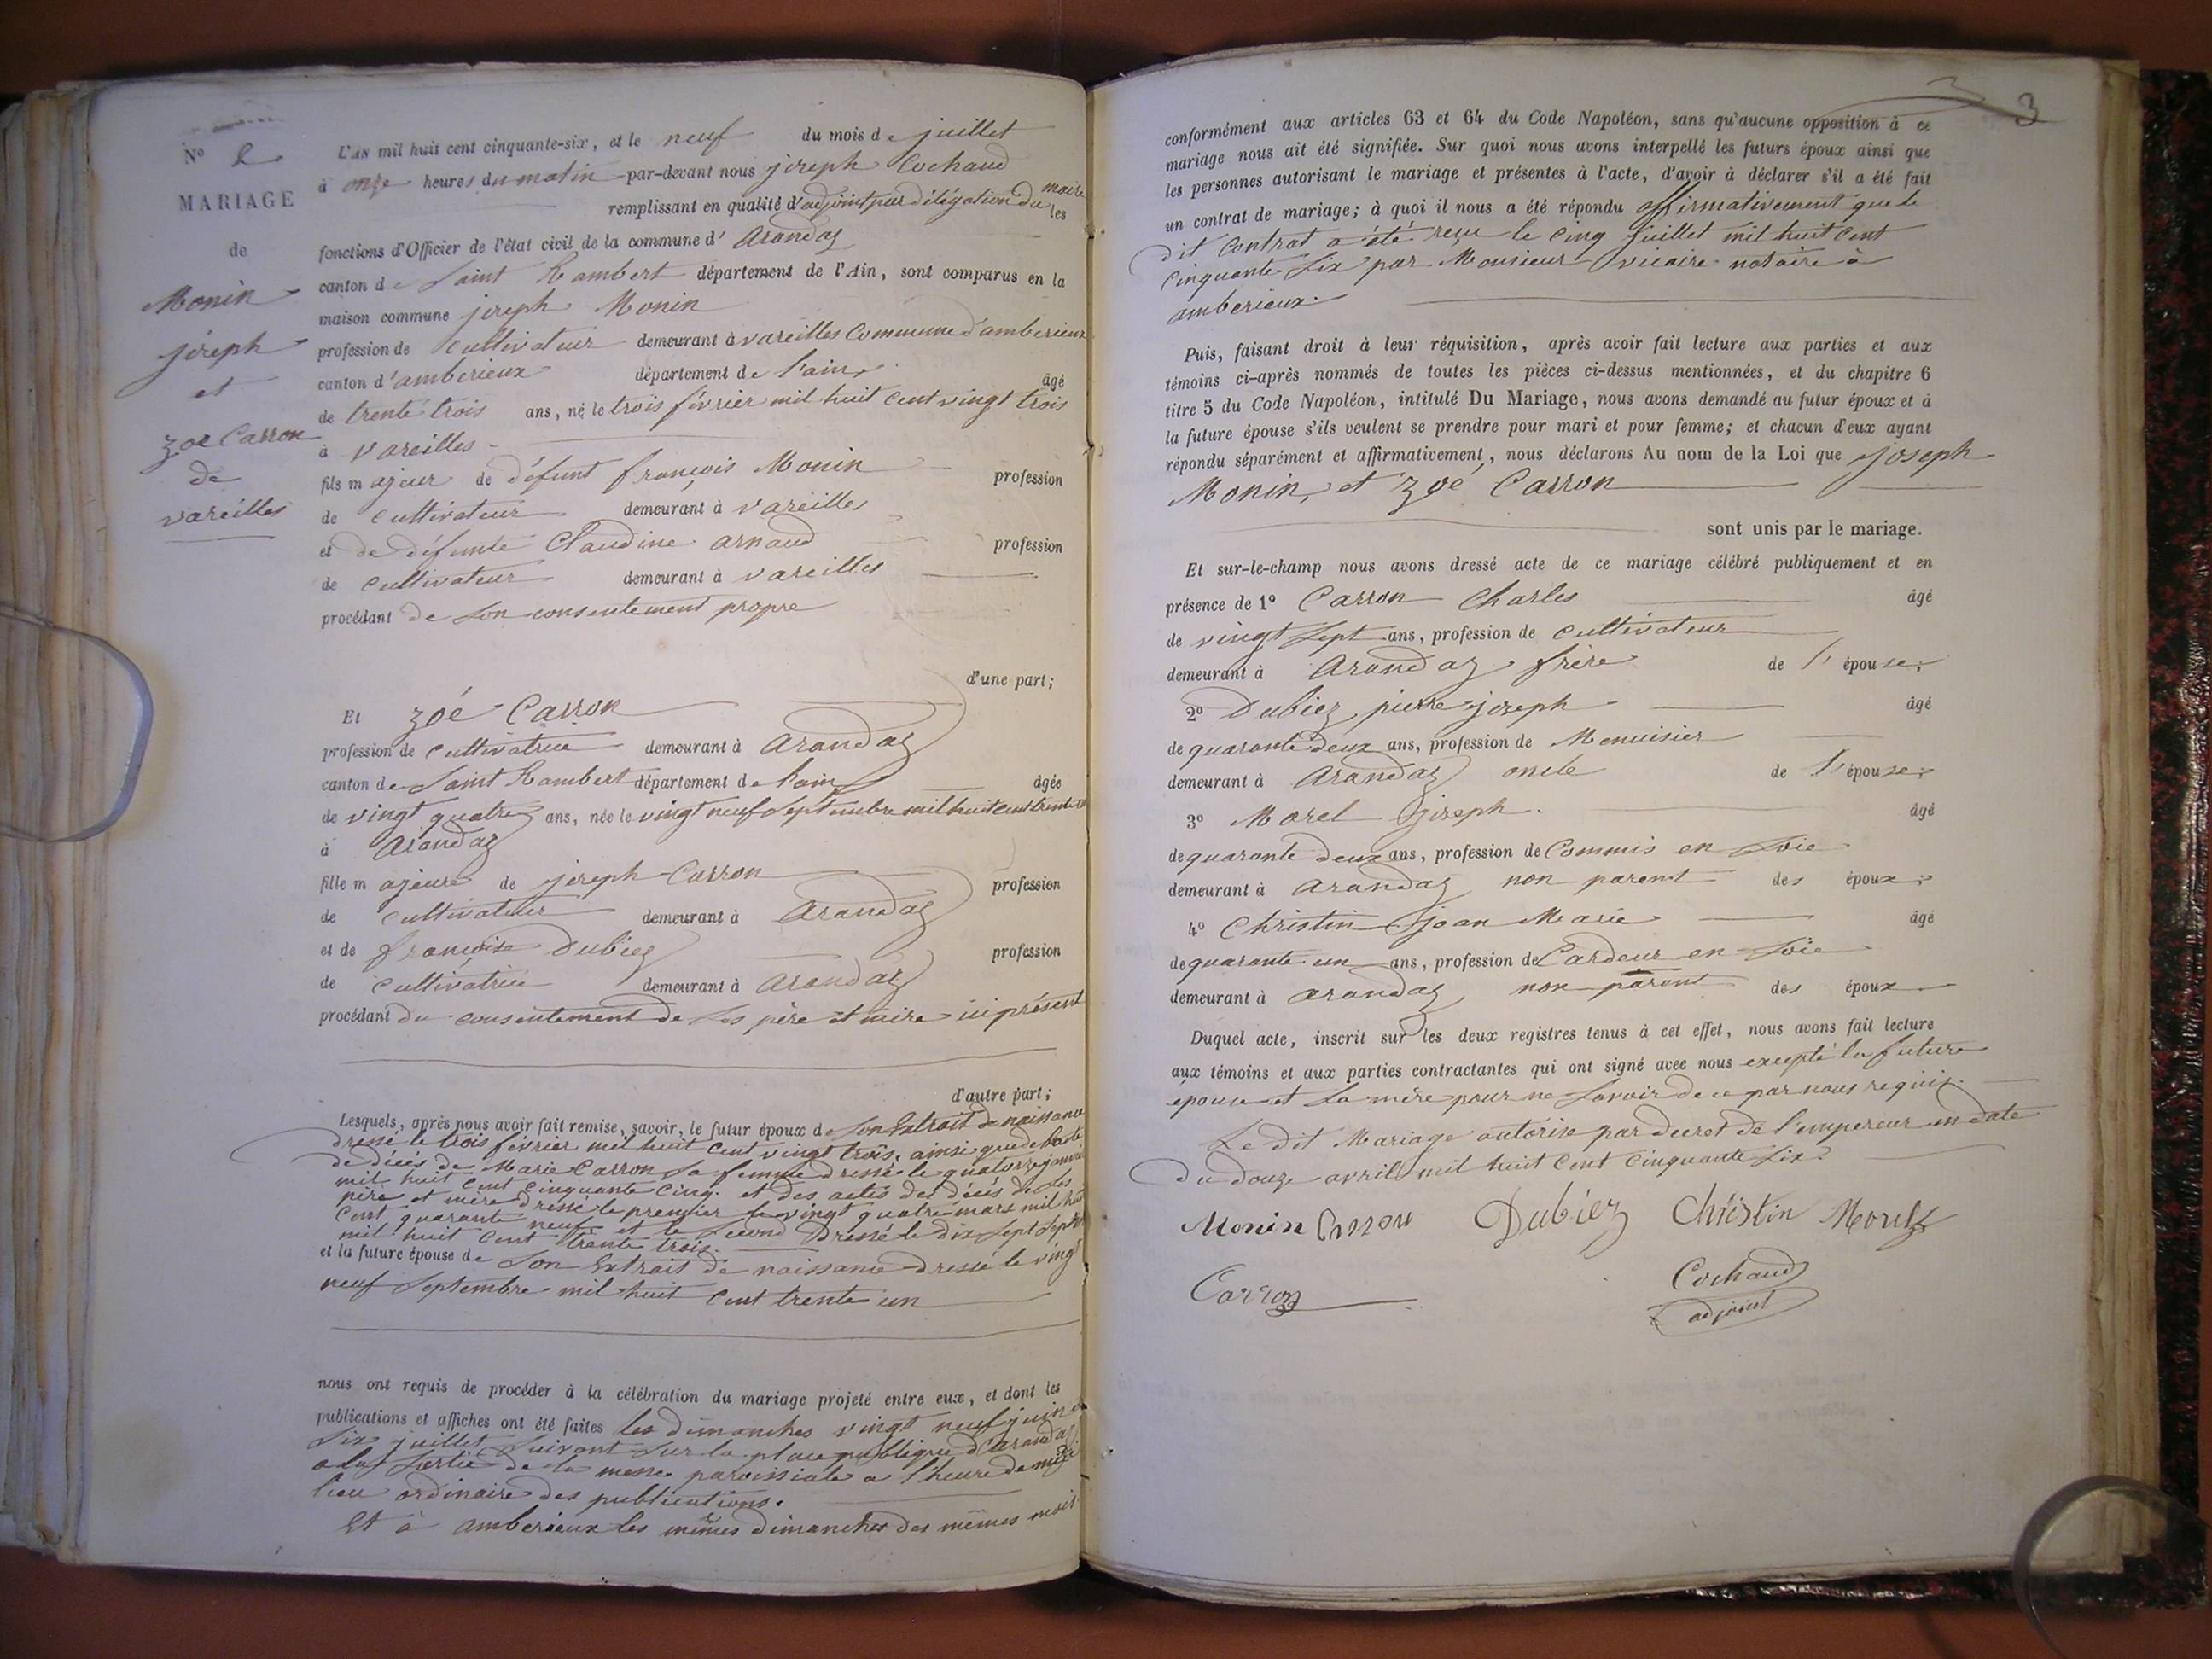 N° 2
MARIAGE
de
Monin
joseph
et
zoé Carron
de
vareilles
L'AN mil huit cent cinquante-six, et le neuf du mois de juillet
à onze heures du matin par-devant nous joseph Cochaud
remplissant en qualité d'adjoint par délégation du maire les
fonctions d'Officier de l'état civil de la commune d' arandaz
canton de Saint Rambert département de l'Ain, sont comparus en la
maison commune joseph Monin
profession de cultivateur demeurant à vareilles Commune d'amberieux
canton d'amberieux département de l'ain, âgé
de trente trois ans, né le trois février mil huit cent vingt trois
à vareilles
fils majeur de défunt françois Monin profession
de cultivateur demeurant à vareilles
et de défunte Claudine arnaud profession
de cultivateur demeurant à vareilles
procédant de son consentement propre
d'une part;
Et zoé Carron
profession de cultivatrice demeurant à arandaz
canton de Saint Rambert département de l'ain âgée
de vingt quatre ans, née le vingt neuf septembre mil huit cent trente un
à arandaz
fille majeure de joseph Carron profession
de cultivateur demeurant à arandaz
et de françoise Dubiez profession
de cultivatrice demeurant à arandaz
procédant du consentement de ses père et mère ici présent
d'autre part;
Lesquels, après nous avoir fait remise, savoir, le futur époux de son Extrait de naissance
dressé le trois février mil huit cent vingt trois, ainsi que de l'acte
de décés de Marie Carron sa femme dressé le quatorze janvier
mil huit cent cinquante cinq. et des actes des décés de ses
père et mère dressé le premier le vingt quatre mars mil huit
cent quarante neuf et le second dressé le dix sept septembre
mil huit cent trente trois.
et la future épouse de son Extrait de naissance dressé le vingt
neuf septembre mil huit cent trente un
nous ont requis de procéder à la célébration du mariage projeté entre eux, et dont les
publications et affiches ont été faites les dimanches vingt neuf juin et
six juillet suivant sur la place publique d'arandaz
a la sortie de la messe paroissiale a l'heure de midi
lieu ordinaire des publications.
Et à amberieux les mêmes dimanches des mêmes mois
3
conformément aux articles 63 et 64 du Code Napoléon, sans qu'aucune opposition à ce
mariage nous ait été signifiée. Sur quoi nous avons interpellé les futurs époux ainsi que
les personnes autorisant le mariage et présentes à l'acte, d'avoir à déclarer s'il a été fait
un contrat de mariage; à quoi il nous a été répondu affirmativement que le
dit contrat a été reçu le cinq juillet mil huit cent
cinquante six par Monsieur vicaire notaire à
amberieux.
Puis, faisant droit à leur réquisition, après avoir fait lecture aux parties et aux
témoins ci-après nommés de toutes les pièces ci-dessus mentionnées, et du chapitre 6
titre 5 du Code Napoléon, intitulé Du Mariage, nous avons demandé au futur époux et à
la future épouse s'ils veulent se prendre pour mari et pour femme; et chacun d'eux ayant
répondu séparément et affirmativement, nous déclarons Au nom de la Loi que joseph
Monin, et zoé Carron
sont unis par le mariage.
Et sur-le-champ nous avons dressé acte de ce mariage célébré publiquement et en
présence de 1° Carron Charles âgé
de vingt sept ans, profession de cultivateur
demeurant à arandaz frère de l'épouse;
2° Dubiez pierre joseph âgé
de quarante deux ans, profession de Menuisier
demeurant à arandaz oncle de l'épouse;
3° Morel joseph. âgé
de quarante deux ans, profession de Commis en soie
demeurant à arandaz non parent des époux;
4° Christin jean Marie âgé
de quarante un ans, profession de Cardeur en soie
demeurant à arandaz non parent des époux
Duquel acte, inscrit sur les deux registres tenus à cet effet, nous avons fait lecture
aux témoins et aux parties contractantes qui ont signé avec nous excepté la future
épouse et sa mère pour ne savoir de ce par nous requis.
Le dit Mariage autorisé par decret de l'empereur en date
du douze avril mil huit cent cinquante six.
Monin Carron Dubiez Christin Morel
Carron Cochaud
adjoint